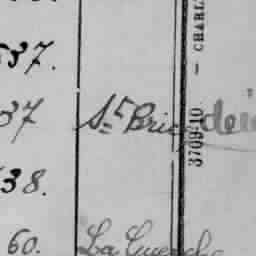 37.
37 St Brie
38.
60. La Guerche
3709-10 — CHARL